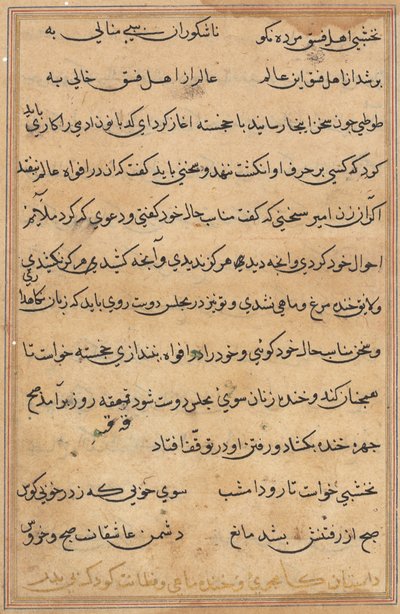 نخشبی اهل فسق مرده نکو ناشکوران منالی به
پر شد از اهل فسق این عالم عالم از اهل فسق خالی به
طوطی چون سخن اینجا رسانید با خجسته اغاز کرد ای کدبانو ادمی را کاری باید
کرد که کسی بر حرف او انکشت ننهد و سخنی باید کفت که ان در افواه عالم نیفتد
اکر ان زن امیر سخنی که کفت مناسب حال خود کفتی و دعوی که کرد ملایم
احوال خود کردی وانچه دیدی هرکز ندیدی و آنچه کشیدی هرکز نکشیدی
ولایق خنده مرغ و ماهی نشدی و تو نیز در مجلس دوست روی باید که زبان نکاهداری
و سخن مناسب حال خود کوئی و خود را در افواه نیندازی خجسته خواست تا
همچنان کند و خنده زنان سوی مجلس دوست شود قهقهه روز برآمد صبح
چهره خنده بکشاد و رفتن او در توقف افتاد
نخشبی خواست تا رود امشب سوی خوبی که زد ز خوبی کوس
صبح از رفتنش بشد مانع دشمن عاشقانست صبح و خروس
داستان و خنده ماهی و فطانت کودک بی پدر